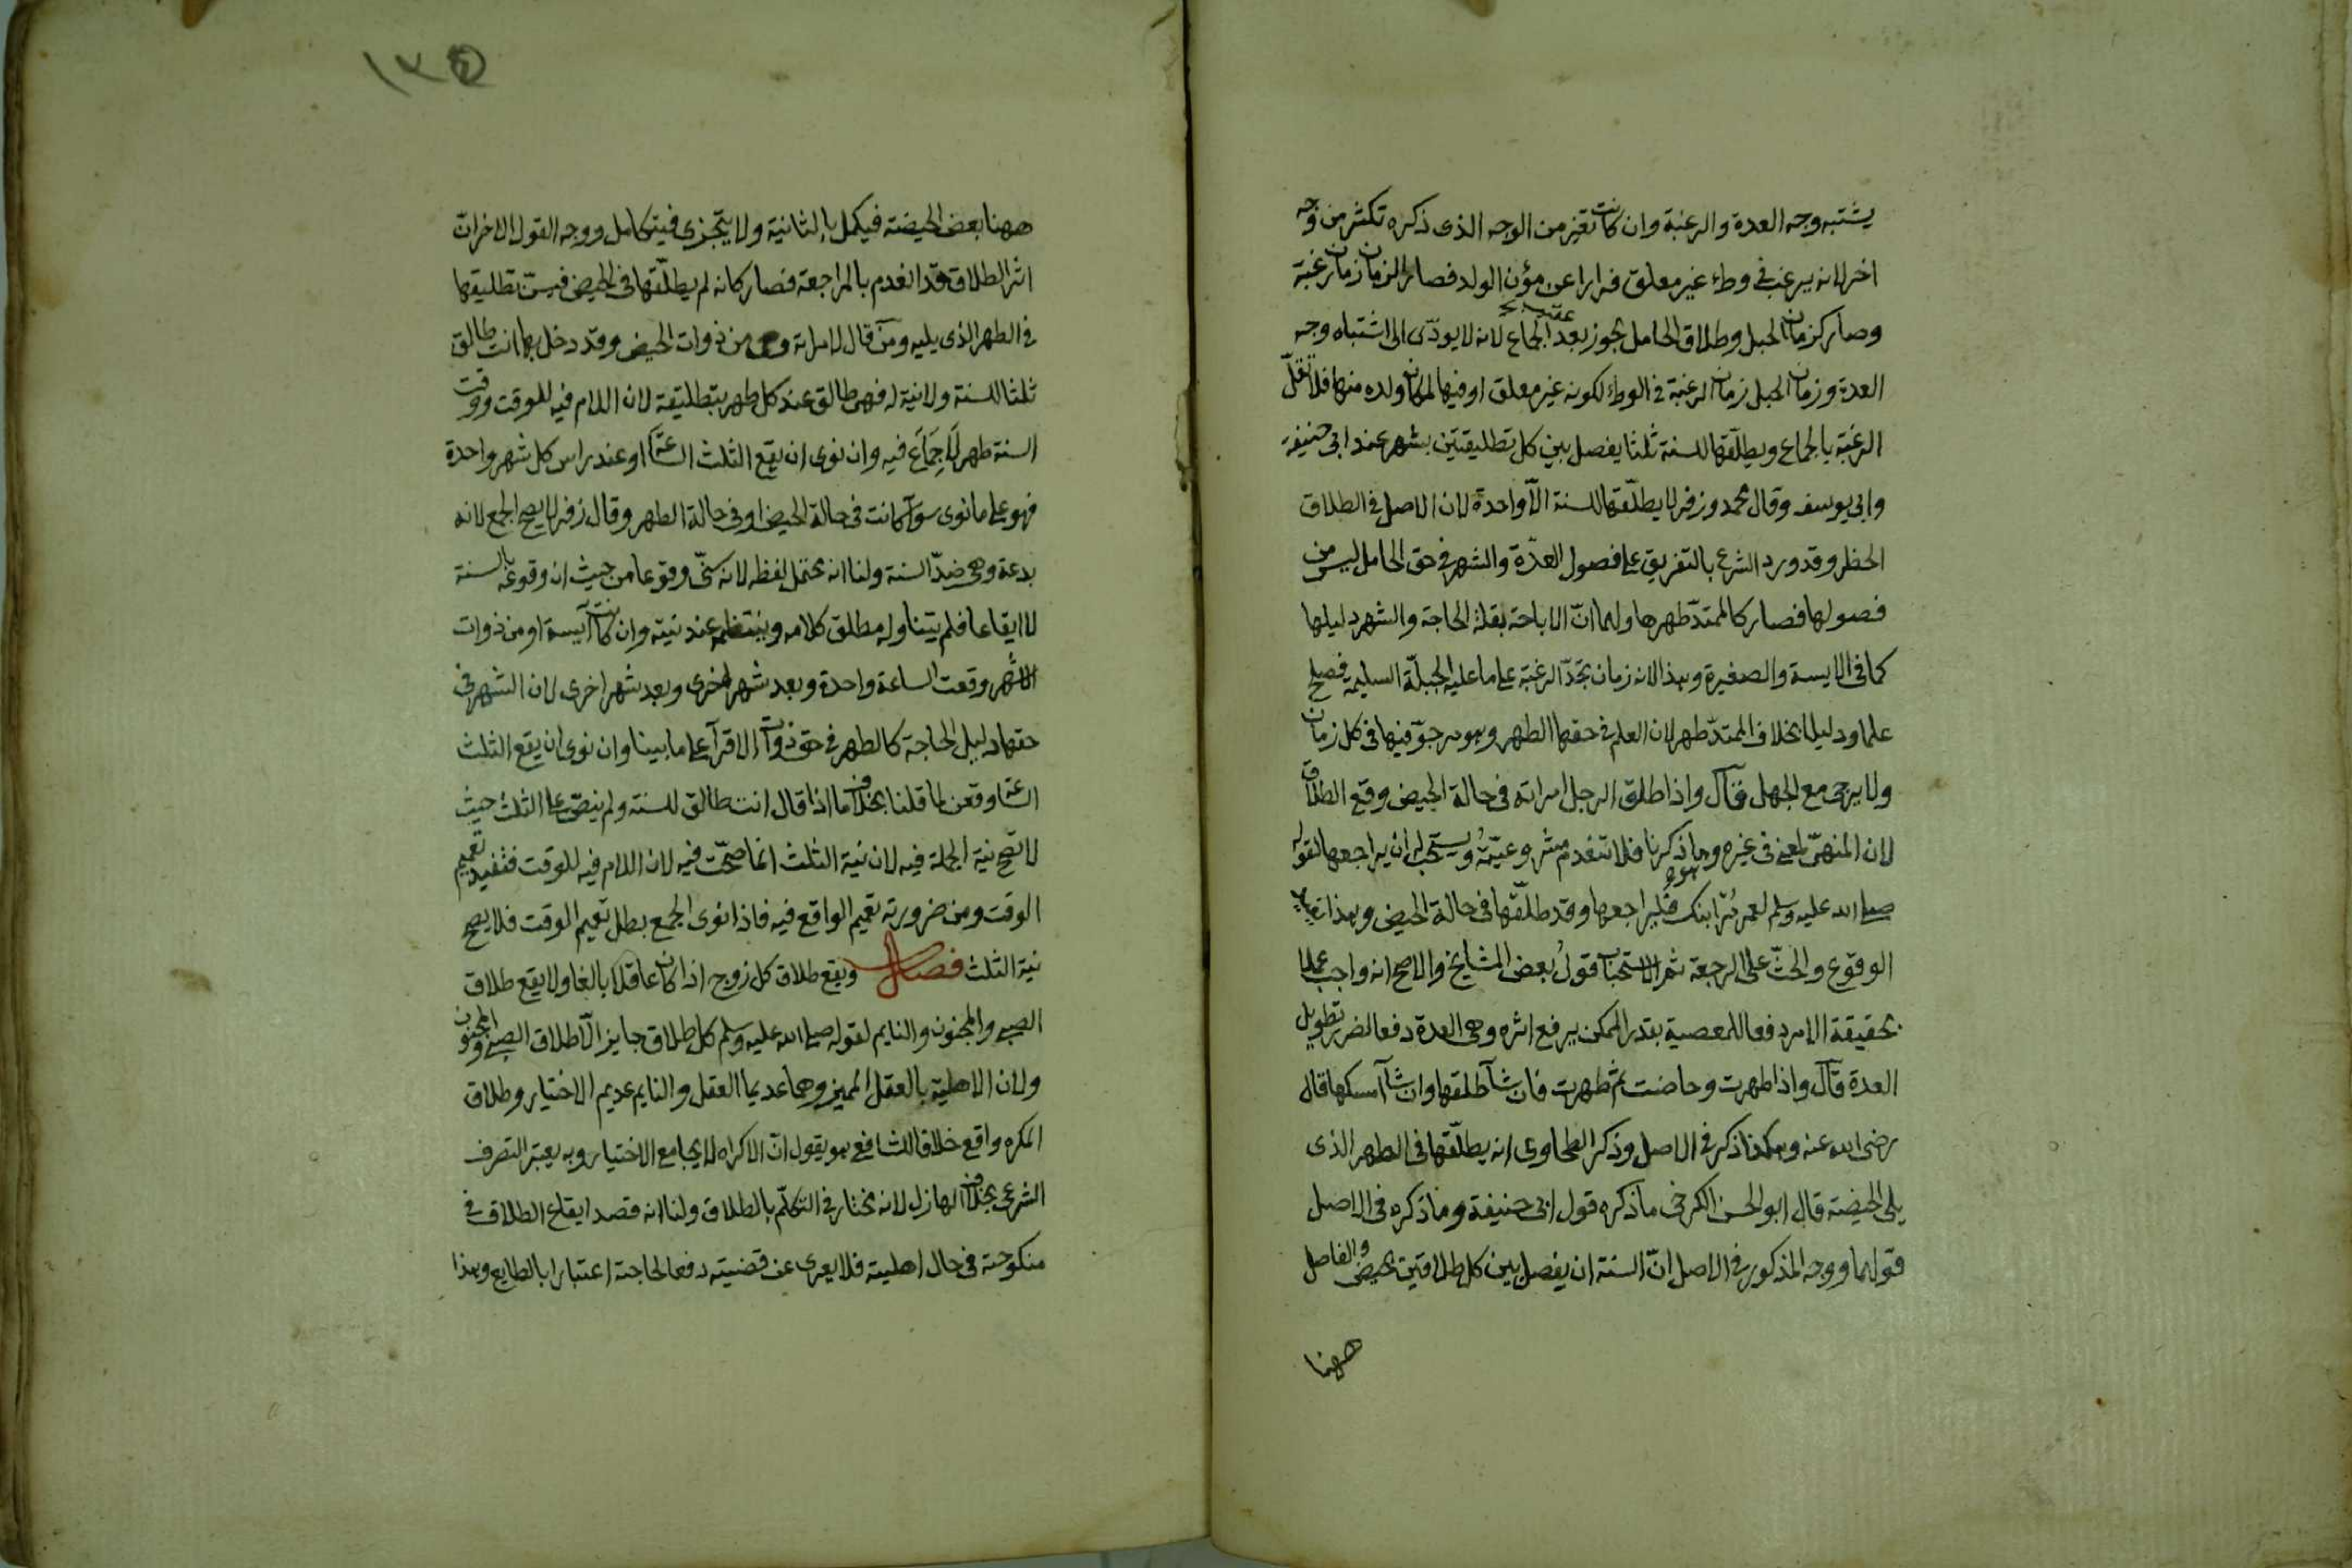 يشتبه وجه العدة والرغبة وان كانت تفتر من الوجه الذى ذكره تكثر من وجه
اخر لانه يرغب فى وطء غير معلق فرارا عن مؤن الولد فصار الزمان زمان رغبة
وصار كزمان الحبل وطلاق الحامل يجوز بعد عقيب الجماع لانه لا يودّى الى اشتباه وجه
العدة وزمان الحبل زمان الرغبة فى الوطء لكونه غير معلق او فيها لمكان ولده منها فلا تقلّ
الرغبة بالجماع ويطلّقها للسنة ثلثا يفصل بين كل تطليقتين بشهر عند ابى حنيفة
وابى يوسف وقال محمد وزفر لا يطلّقها للسنة الّا واحدة لان الاصل فى الطلاق
الحظر وقد ورد الشرع بالتفريق على فصول العدّة والشهر فى حق الحامل ليس من
فصولها فصار كالممتدّ طهرها ولهما انّ الاباحة بقلة الحاجة والشهر دليلها
كما فى الايسة والصغيرة وهذا لانه زمان تجدّد الرغبة على ما عليه الجبلّة السليمة فصلح
علما ودليلا بخلاف الممتدّ طهر لان العلم فى حقها الطهر وهو مرجوّ فيها فى كل زمان
ولا يرجى مع الحبل قال واذا طلق الرجل امراته فى حالة الحيض وقع الطلاق
لان المنهىّ لمعنى فى غيره وهو ما ذكرنا فلا تنعدم مشروعيّته ويستحبّ له ان يراجعها لقوله
صلى الله عليه وسلم لعمر مُرْ ابنك فليراجعها وقد طلّقها فى حالة الحيض وهذا يفيد
الوقوع والحثّ على الرجعة ثم الاستحباب قول بعض المشايخ والاصح انه واجب عملا
بحقيقة الامر ودفعا للمعصية بقدر الممكن يرفع اثره وهى العدة دفعا لضرر تطويل
العدة قال واذا طهرت وحاضت ثم طهرت فان شآ طلقها وان شآ امسكها قال
رضى الله عنه وهكذا ذكر فى الاصل وذكر الطحاوى انه يطلّقها فى الطهر الذى
يلى الحيضة قال ابو الحسن الكرخى ما ذكره قول ابى حنيفة وما ذكره فى الاصل
قولهما ووجه المذكور فى الاصل انّ السنة ان يفصل بين كل طلاقين بحيضة والفاصل
ههنا
١٣٥
ههنا بعض الحيضة فيكمل بالثانية ولا يتجزى فيتكامل ووجه القول الاخر انّ
اثر الطلاق قد انعدم بالمراجعة فصار كانه لم يطلّقها فى الحيض فيسنّ تطليقها
فى الطهر الذى يليه ومن قال لامراته وهى من ذوات الحيض وقد دخل بها انت طالق
ثلثا للسنة ولا نية له فهى طالق عند كل طهر بتطليقة لان اللام فيه للوقت ووقت
السنة طهر لا جماع فيه وان نوى ان يقع الثلث الساعة او عند راس كل شهر واحدة
فهو على ما نوى سوآ كانت فى حالة الحيض او فى حالة الطهر وقال زفر لا يصح الجمع لانه
بدعة وهى ضدّ السنة ولنا انه يحتمل لفظه لانه سنّى وقوعا من حيث ان وقوعه بالسنة
لا ايقاعا فلم يتناوله مطلق كلامه وينتظمه عند نيته وان كانت آيسة او من ذوات
الاشهر وقعت الساعة واحدة وبعد شهر اخرى وبعد شهر اخرى لان الشهر فى
حقها دليل الحاجة كالطهر فى حق ذوات الاقرآ على ما بينا وان نوى ان يقع الثلث
الساعة وقعن لما قلنا بخلاف ما اذا قال انت طالق للسنة ولم ينصّ على الثلث حيث
لا تصح نية الجملة فيه لان نية الثلث انما صحّت فيه لان اللام فيه للوقت فتفيد تعميم
الوقت ومن ضرورته تعميم الواقع فيه فاذا نوى الجمع بطل تعميم الوقت فلا يصح
نية الثلث فصل ويقع طلاق كل زوج اذا كان عاقلا بالغا ولا يقع طلاق
الصبى والمجنون والنايم لقوله صلى الله عليه وسلم كل طلاق جايز الّا طلاق الصبى والمجنون
ولان الاهلية بالعقل المميز وهما عديما العقل والنايم عديم الاختيار وطلاق
المكره واقع خلافا للشافعى هو يقول انّ الاكراه لا يجامع الاختيار وبه يعتبر التصرف
الشرعى بخلاف الهازل لانه مختار فى التكلّم بالطلاق ولنا انه قصد ايقاع الطلاق فى
منكوحته فى حال اهليته فلا يعرى عن قضيته دفعا لحاجته اعتبارا بالطايع وهذا